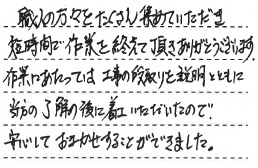 職人の方々をたくさん集めていただき
短時間で作業を終えて頂きありがとうございます。
作業にあたっては工事の段取りを説明とともに
当方の了解の後に着工いただいたので、
安心しておまかせすることができました。